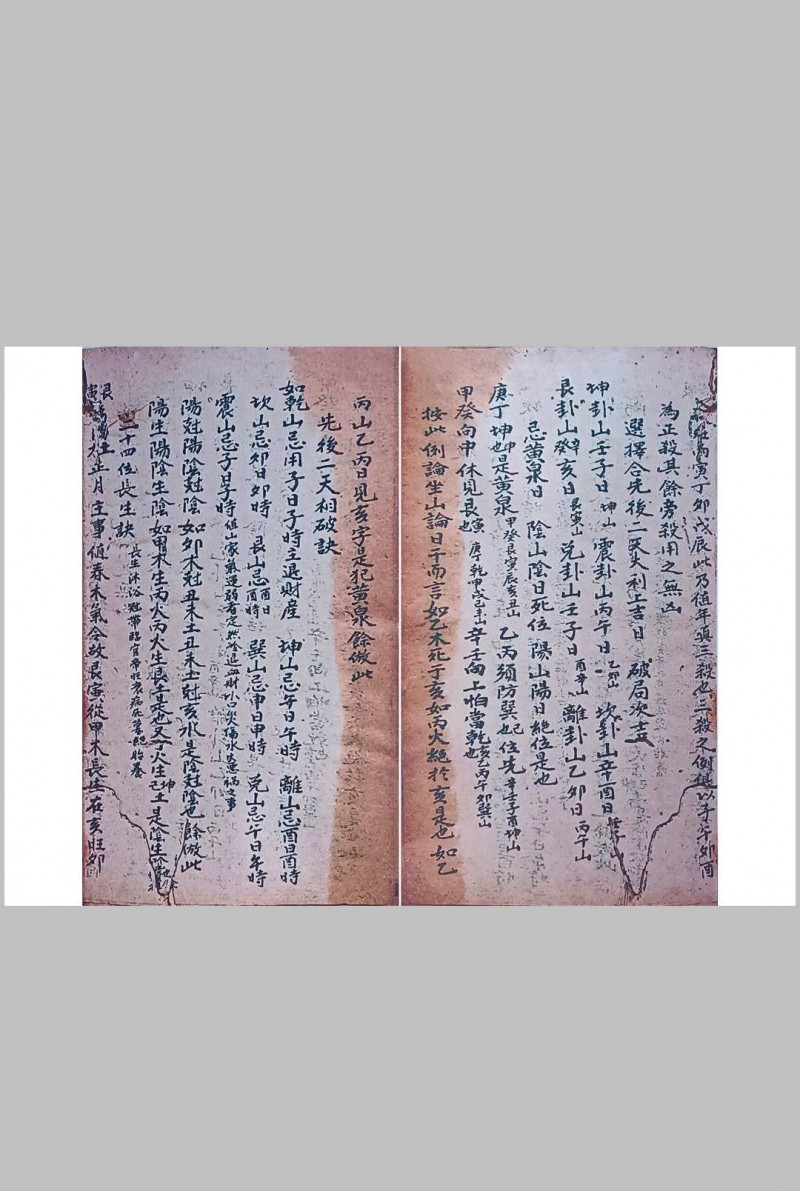 寅丁卯戊辰此乃值年真三殺也三殺之例俱以子午卯酉
為正殺其餘旁殺用之無凶
選擇合先後二天大利上吉日 破局次吉
坤卦山壬子日 坤山 震卦山丙午日 乙卯山 坎卦山辛酉日
艮卦山癸亥日 艮寅山 兌卦山壬子日 酉辛山 離卦山乙卯日 丙午山
忌黃泉日 陰山陰日死位 陽山陽日絕位是也
庚丁坤申也是黃泉 甲癸艮寅辰亥丑山 乙丙須防巽巳位先 辛壬子酉坤山
甲癸向中休見艮寅也 庚丁乾甲戌己未山 辛壬向上怕當乾亥也 乙丙午卯巽山
按此例論坐山論日干而言如乙木死丁亥如丙火絕於亥是也如乙
丙山乙丙日見亥字是犯黃泉餘倣此
先後二天相破訣
如乾山忌用子日子時主退財產 坤山忌午日午時 離山忌酉日酉時
坎山忌卯日卯時 艮山忌酉日酉時 巽山忌申日申時 兌山忌午日午時
震山忌子日子時 值山家氣運弱者定然冷退血財小口災傷水火惡禍之事
陽尅陽陰尅陰如卯木尅丑未土丑未土尅亥水是陰尅陰也餘倣此
陽生陽陰生陰如甲木生丙火丙火生艮土是也又丁火生坤己土是陰生陰也
二十四位長生訣 長生沐浴冠帶臨官帝旺衰病死墓絕胎養
艮寅正月主事值春木氣令故艮寅從甲木長生在亥旺卯